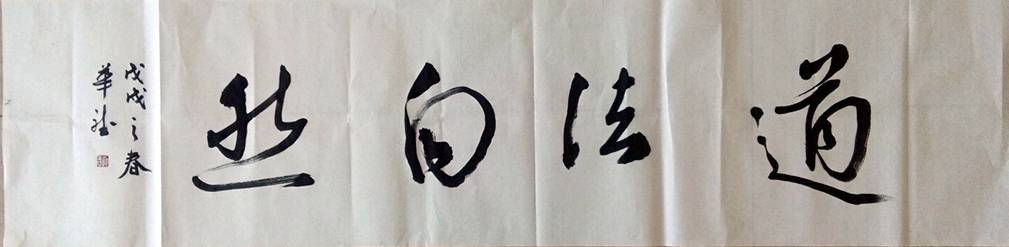 道法自然
戊戌之春
華